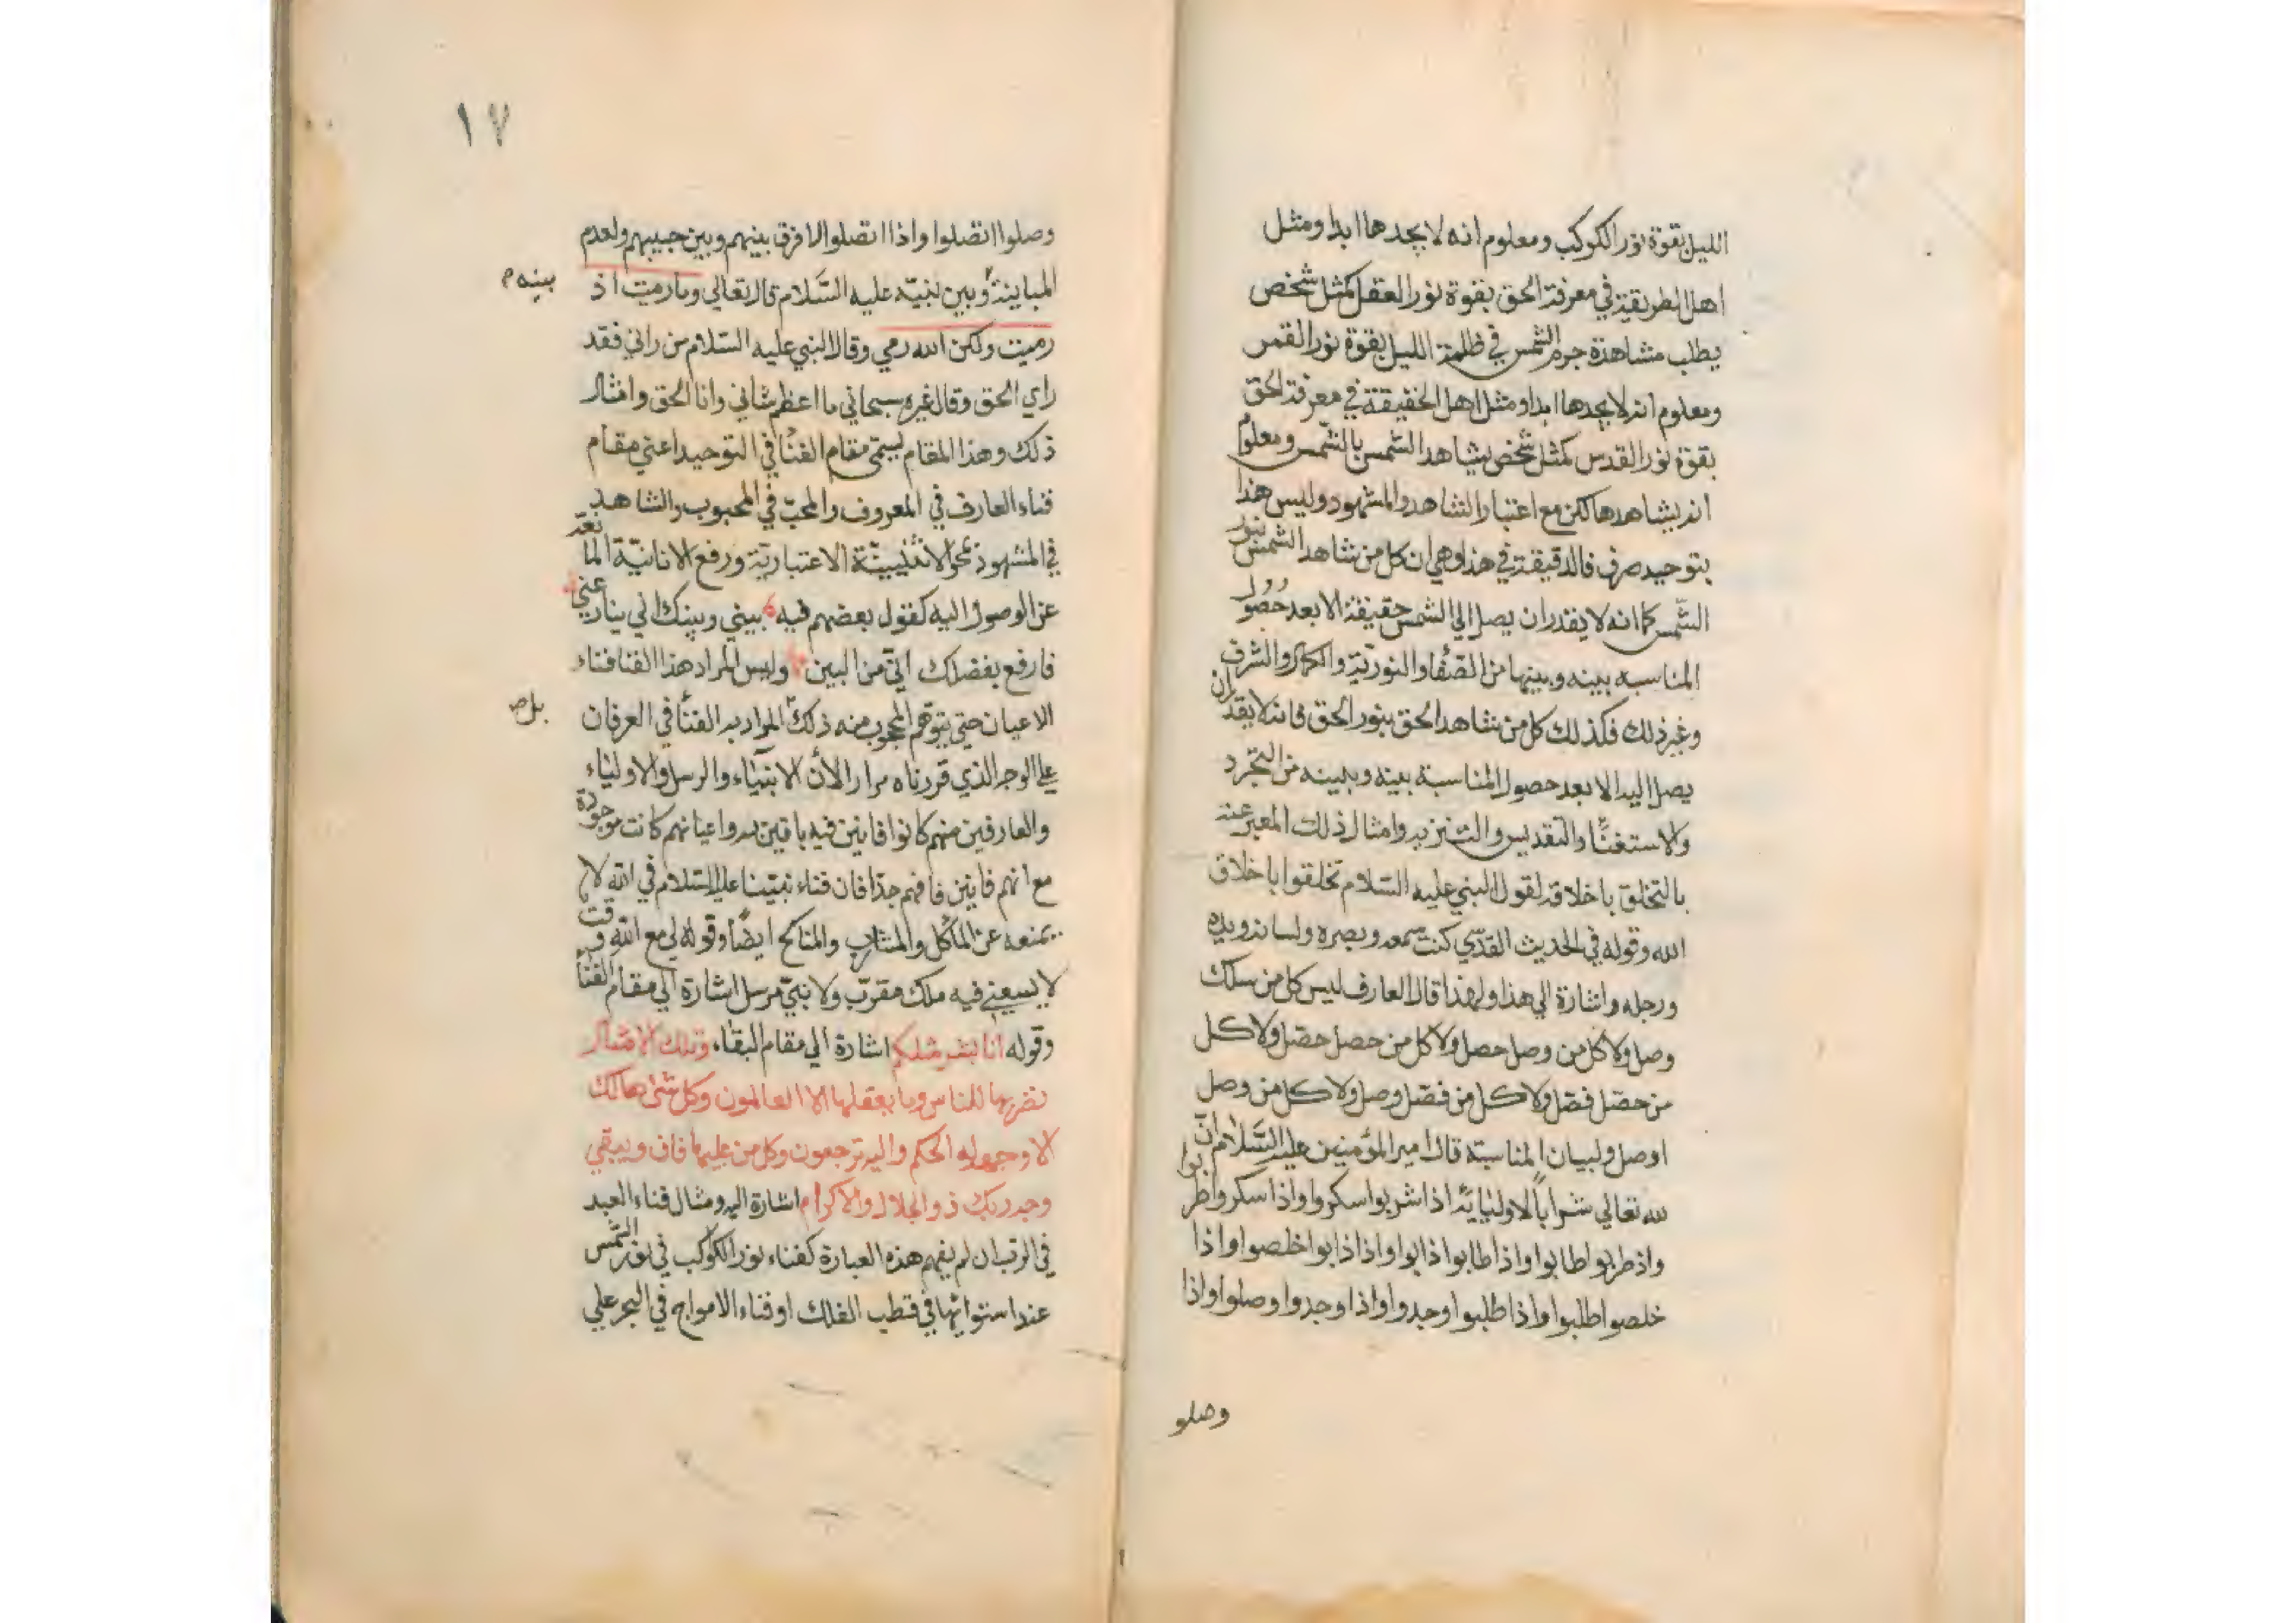 الليل بقوة نور الكوكب ومعلوم انه لا يجدها ابدا ومثل
اهل الطريقة في معرفة الحق بقوة نور العقل كمثل شخص
يطلب مشاهدة جرم الشمس في ظلمة الليل بقوة نور القمر
ومعلوم انه لا يجدها ابدا ومثل اهل الحقيقة في معرفة الحق
بقوة نور القدس كمثل شخص يشاهد الشمس بالشمس ومعلوم
انه يشاهدها لكن مع اعتبار الشاهد والمشهود وليس هذا
بتوحيد صرف فالدقيقة في هذا وهي ان كل من شاهد الشمس بنور
الشمس كما انه لا يقدر ان يصل الي الشمس حقيقة الا بعد حصول
المناسبه بينه وبينها من الصفا والنورية والكمال والشرف
وغير ذلك فكذلك كل من شاهد الحق بنور الحق فانه لا يقدر ان
يصل اليه الا بعد حصول المناسبة بينه وبينه من التجرد
والاستغنا والتقديس والتنزيه وامثال ذلك المعبر عنه
بالتخلق باخلاقه لقول النبي عليه السلام تخلقوا باخلاق
الله وقوله في الحديث القدسي كنت سمعه وبصره ولسانه ويده
ورجله واشارة الي هذا ولهذا قال العارف ليس كل من سلك
وصل ولا كل من وصل حصل ولا كل من حصل حصل ولا كل
من حصل فصل ولا كل من فصل وصل ولا كل من وصل
اوصل ولبيان المناسبة قال امير المؤمنين عليه السلام ان
لله تعالي شرابا لاوليايه اذا شربوا سكروا واذا سكروا طربوا
واذ طربوا طابوا واذا طابوا ذابوا واذا ذابوا خلصوا واذا
خلصوا طلبوا واذا طلبوا وجدوا واذا وجدوا وصلوا واذا
وصلو
١٧
وصلوا اتصلوا واذا اتصلوا لا فرق بينهم وبين حبيبهم ولعدم
المباينة وبين نبيه عليه السلام قال تعالي وما رميت اذ
بينه م
رميت ولكن الله رمي وقال النبي عليه السلام من راني فقد
راي الحق وقال غيره سبحاني ما اعظم شاني وانا الحق وامثال
ذلك وهذا المقام يسمي مقام الفنا في التوحيد اعني مقام
فناء العارف في المعروف والمحب في المحبوب والشاهد
في المشهود بمحو الاثنينية الاعتبارية ورفع الانانية المانعة
عن الوصول اليه كقول بعضهم فيه بيني وبينك اني ينازعني
فارفع بفضلك اني من البين وليس المراد هذا الفنا فناء
الاعيان حتي يتوهم المحجوب منه ذلك المراد به الفنا في العرفان
بل ص
علي الوجه الذي قررناه مرارا لان الانبياء والرسل والاولياء
والعارفين منهم كانوا فانين فيه باقين به واعيانهم كانت موجودة
مع انهم فانين فافهم جدا فان فناء نبينا عليه السلام في الله لا
يمنعه عن المآكل والمشارب والمناكح ايضا وقوله لي مع الله وقت
لا يسعني فيه ملك مقرب ولا نبي مرسل اشارة الي مقام الفنا
وقوله انا بشر مثلكم اشارة الي مقام البقاء وتلك الامثال
نضربها للناس وما يعقلها الا العالمون وكل شئ هالك
الا وجهه له الحكم واليه ترجعون وكل من عليها فان ويبقي
وجه ربك ذو الجلال والاكرام اشارة اليه ومثال فناء العبد
في الرب ان لم يفهم هذه العبارة كفناء نور الكوكب في نور الشمس
عند استوايها في قطب الفلك او فناء الامواج في البحر علي